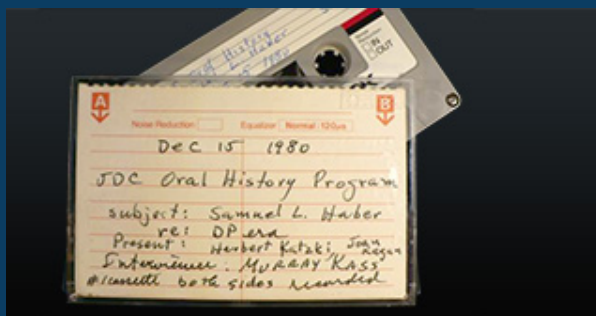 Oral History
L. Haber
15 1980
IN
OUT
A
B
Noise Reduction Equalizer Normal: 120µs
Dec 15 1980
JDC Oral History Program
subject: Samuel L. Haber
re: DP era
Present: Herbert Katzki; Joan Regan
Interviewer: MURRAY KASS
#1 cassette both sides recorded